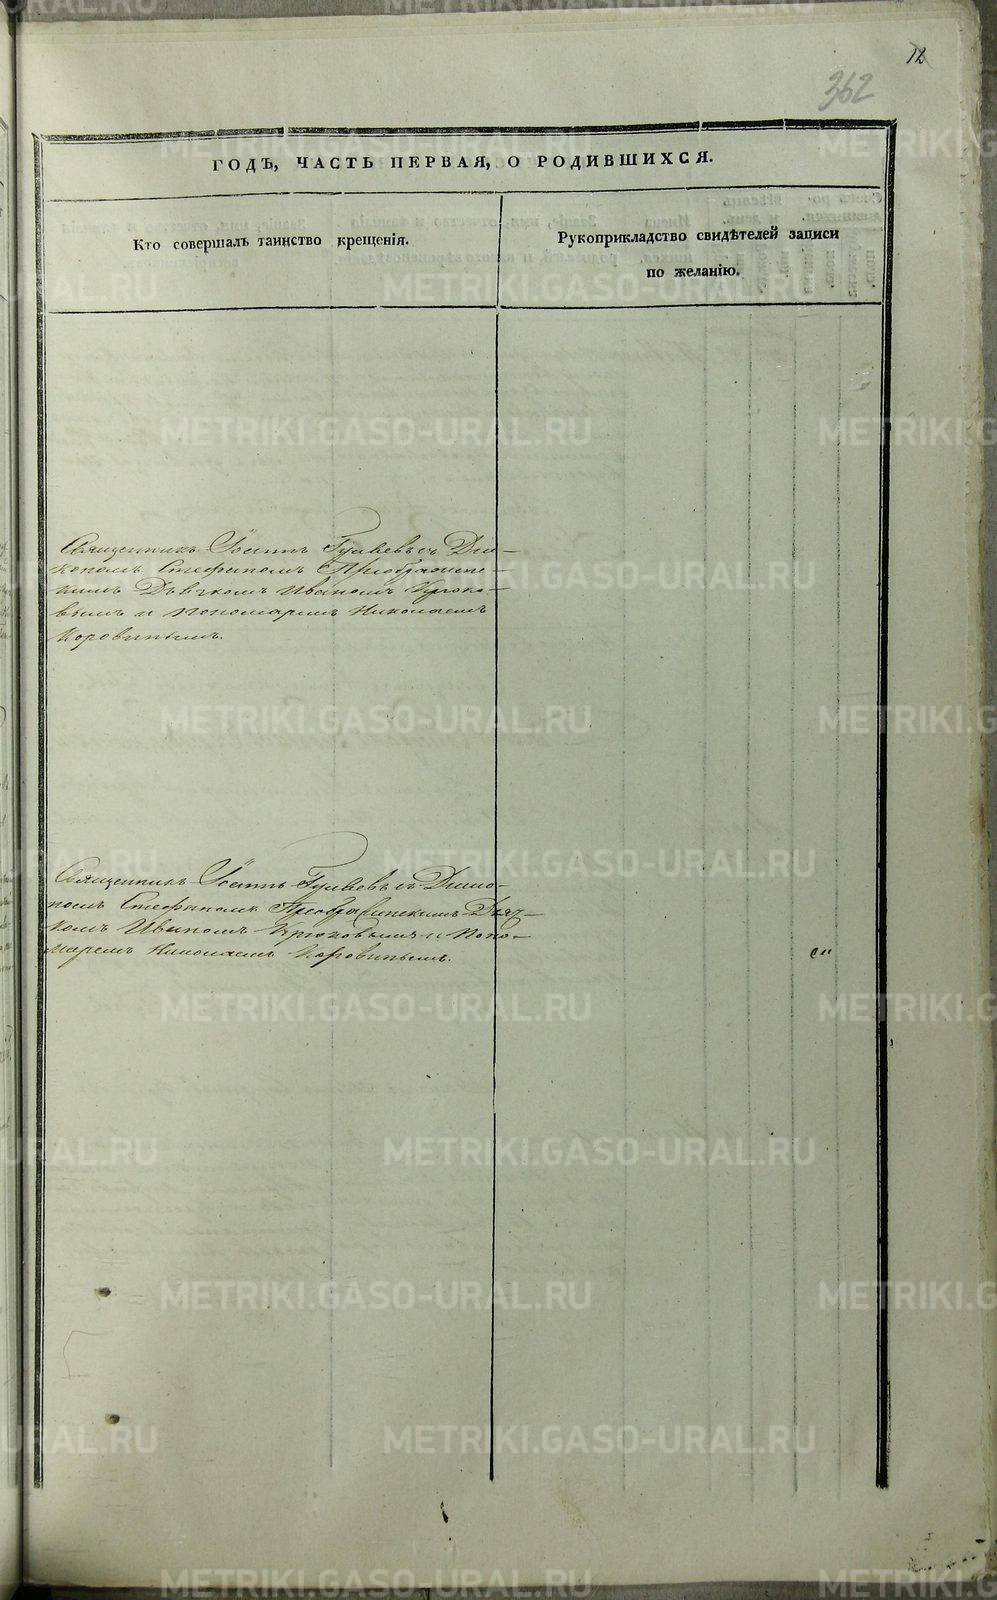 12
362
ГОДЪ, ЧАСТЬ ПЕРВАЯ, О РОДИВШИХСЯ.
Кто совершалъ таинство крещенія.
Рукоприкладство свидѣтелей записи
по желанію.
Священникъ Іоаннъ Гуляевъ съ Діа-
кономъ Стефаномъ Преображенс-
кимъ Дьячкомъ Иваномъ Крюко-
вымъ и Пономаремъ Николаемъ
Коровинымъ.
Священникъ Іоаннъ Гуляевъ съ Діако-
номъ Стефаномъ Преображенскимъ Дьяч-
комъ Иваномъ Крюковымъ и Поно-
маремъ Николаемъ Коровинымъ.
METRIKI.GASO-URAL.RU